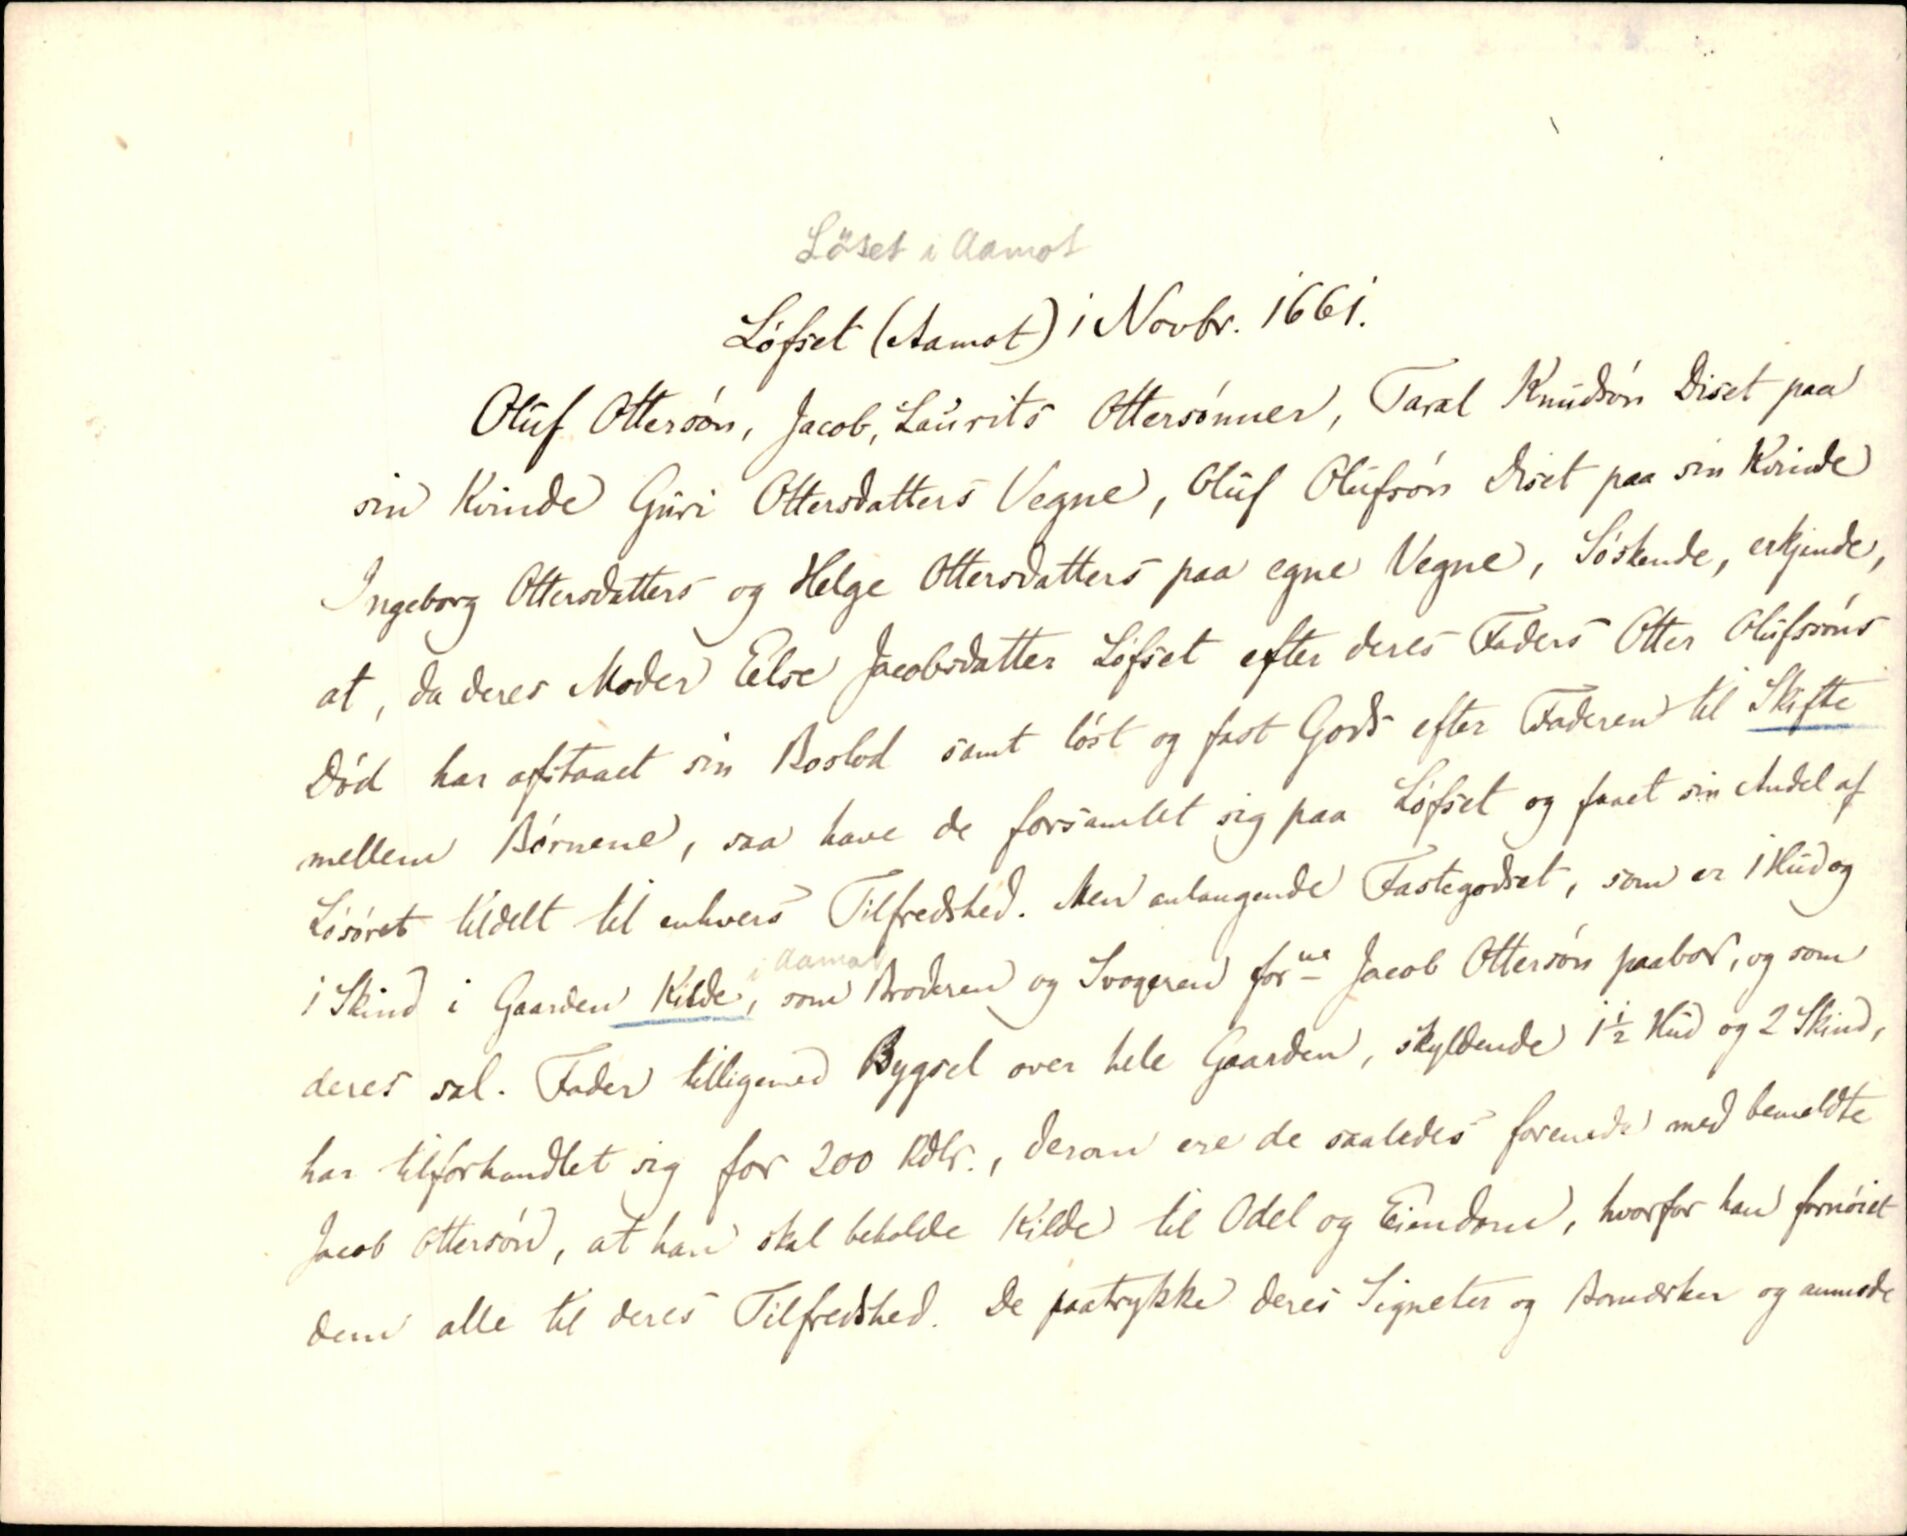 Löset i Aamot
Löfset (Aamot) i Novbr. 1661.
Oluf Ottersön, Jacob, Laurits Ottersönner, Taral Knudsön Diset paa
sin Kvinde Guri Ottersdatters Vegne, Oluf Olufsön Diset paa sin Kvinde
Ingeborg Ottersdatters og Helge Ottersdatters paa egne Vegne, Söskende, erkjende,
at, da deres Moder Eelse Jacobsdatter Löfset efter deres Faders Otter Olufssöns
Död har afstaaet sin Boslod samt löst og fast Gods efter Faderen til Skifte
mellem Börnene, saa have de forsamlet sig paa Löfset og faaet sin Andel af
Lösöret tildelt til enhvers Tilfredshed. Men anlangende Fastegodset, som er 1 Hud og
1 Skind i Gaarden Kilde, i Aamot som Broderen og Svogeren forne Jacob Ottersön paabor, og som
deres sal. Fader tilligemed Bygsel over hele Gaarden, skyldende 1½ Hud og 2 Skind,
har tilforhandlet sig for 200 Rdlr., derom ere de saaledes forenede med bemeldte
Jacob Ottersön, at han skal beholde Kilde til Odel og Eiendom, hvorfor han fornöiet
dem alle til deres Tilfredshed. De paatrykke deres Signeter og Bomærker og anmode